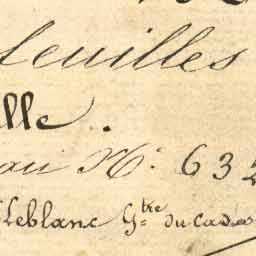 feuilles
lle.
au N° 632
Leblanc G.tre du Cadas